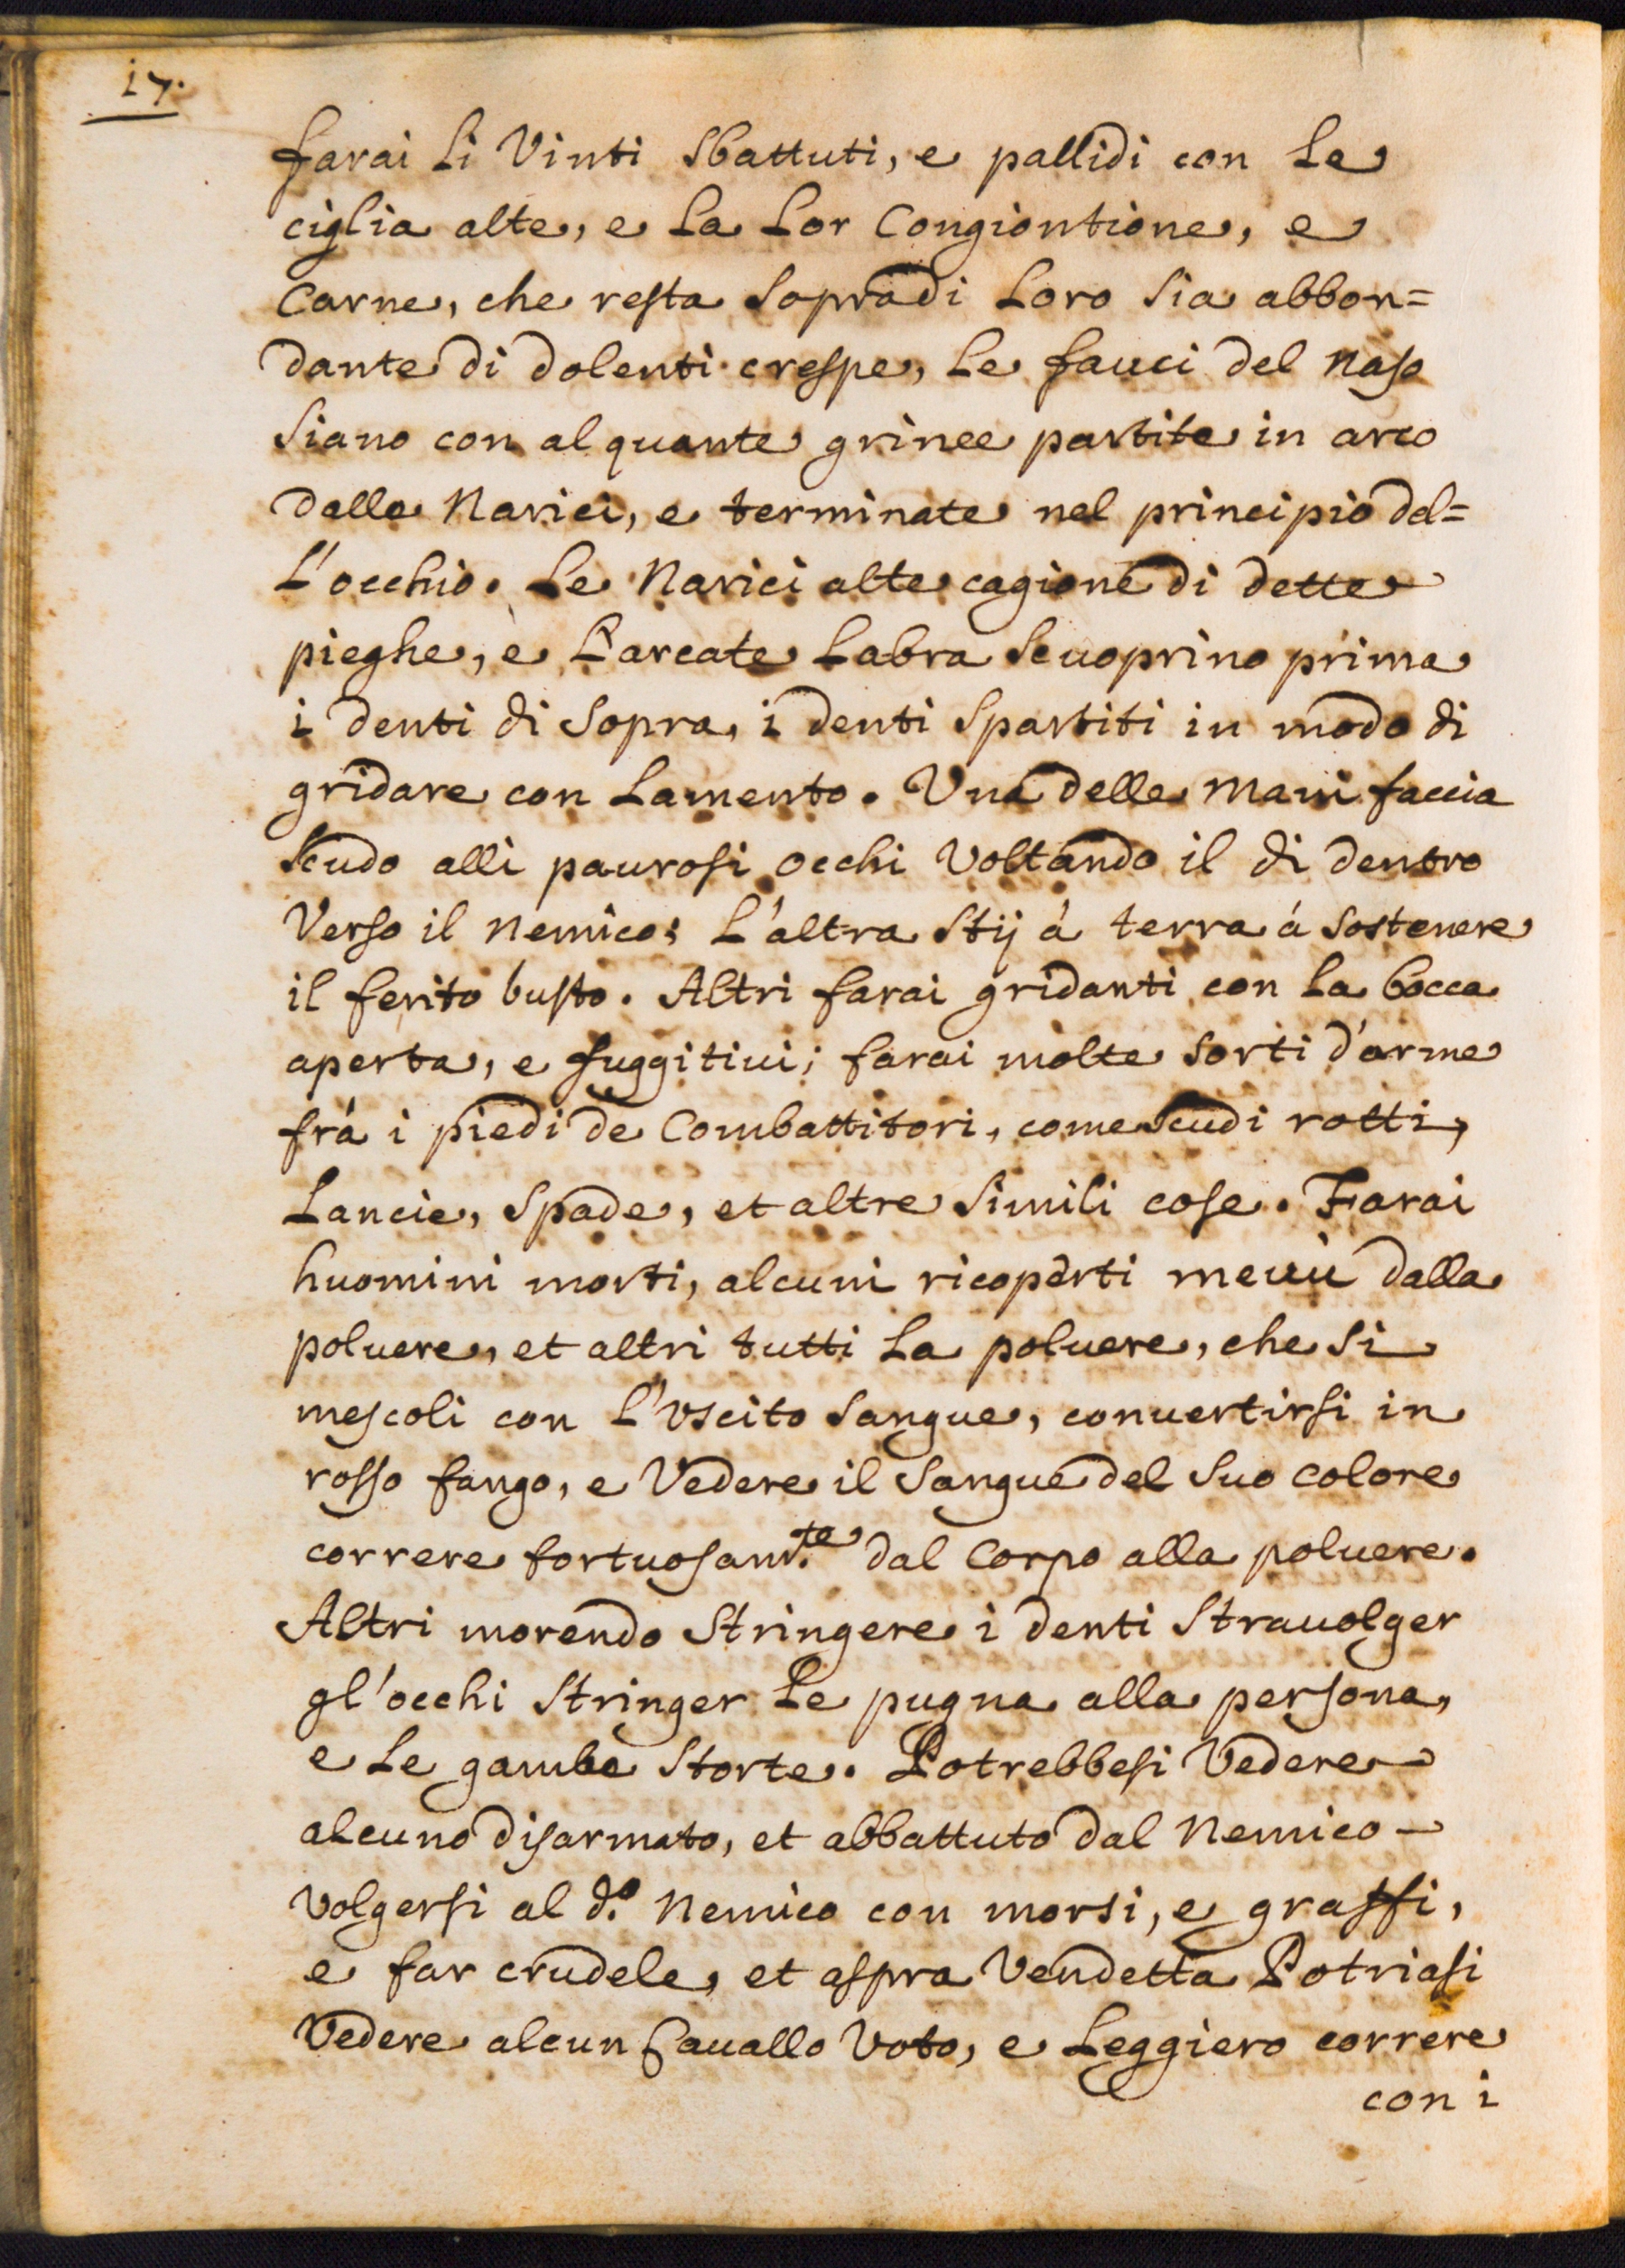 17.
farai li Vinti Sbattuti, e pallidi con le
ciglia alte, e la lor Congiontione, e
Carne, che resta Sopra di loro Sia abbon=
dante di dolenti crespe, le fauci del naso
Siano con alquante grince partite in arco
dalle Narici, e terminate nel principio del=
l'occhio. Le Narici alte cagione di dette
pieghe, e l'arcate labra Scuoprino prima
i denti di Sopra, i denti Spartiti in modo di
gridare con lamento. Una delle mani faccia
Scudo alli paurosi occhi Voltando il di dentro
Verso il nemico; l'altra Stij à terra à Sostenere
il ferito busto. Altri farai gridanti con la bocca
aperta, e fuggitiui; farai molte Sorti d'arme
frà i piedi de Combattitori, come Scudi rotti,
Lancie, Spade, et altre Simili cose. Farai
huomini morti, alcuni ricoperti dalla
poluere, et altri tutti la poluere, che Si
mescoli con l'Vscito Sangue, conuertirsi in
rosso fango, e Vedere il Sangue del Suo colore
correre tortuosam.te dal Corpo alla poluere.
Altri morendo Stringere i denti Strauolger
gl'occhi Stringer le pugna alla persona,
e le gambe Storte. Potrebbesi Vedere
alcuno disarmato, et abbattuto dal Nemico
Volgersi al d.o Nemico con morsi, e graffi,
e far crudele, et aspra Vendetta Potriasi
Vedere alcun Cauallo Voto, e leggiero correre
con i